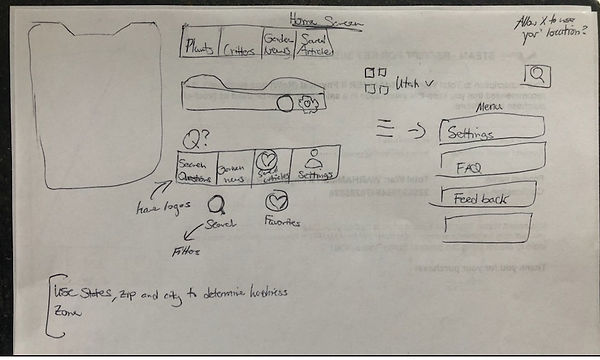 Home Screen
Allow X to use
your location?
Plants
Critters
Garden
News
Saved
Articles
Utah
Q?
Search
Questions
Garden
news
Saved
articles
Settings
have logos
Search
Favorites
Filter
Menu
Settings
FAQ
Feedback
Use States, zip and city to determine hardiness
Zone
Thank you for your purchase!